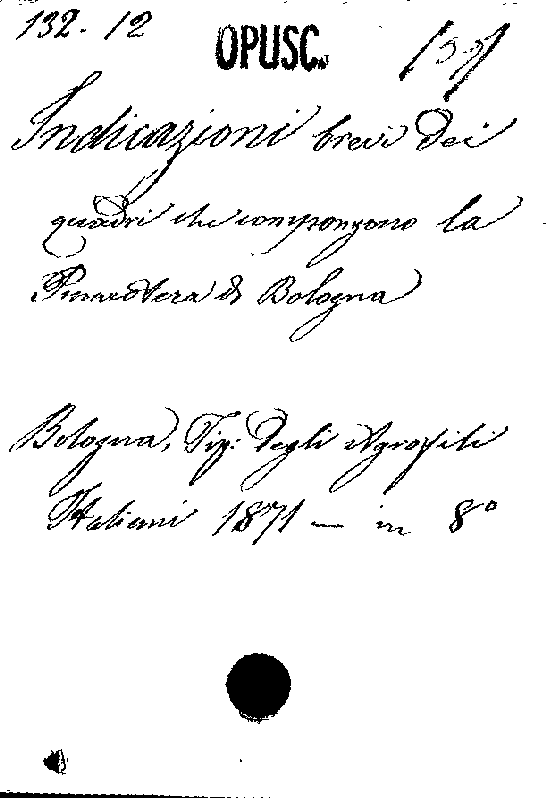 132. 12 OPUSC.
Indicazioni brevi dei
quadri che compongono la
Pinacoteca di Bologna
Bologna, Tip: degli Agrofili
Italiani 1871 — in 8°